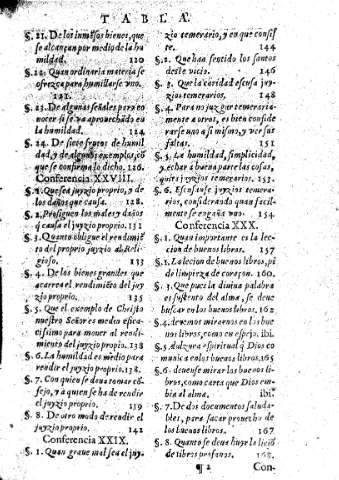 TABLA
§. 21. De los inmẽsos bienes, que
se alcançan por medio de la hu
mildad. 120
§. 22. Quan ordinaria materia se
ofrezca para humillarse vno.
121.
§. 23. De algunas señales para co
nocer si se va aprouechãdo en
la humildad. 124
§. 24. De siete frutos de humil
dad, y de algunos exemplos, cõ
que se confirma lo dicho. 126.
Conferencia XXVIII.
§. 1. Que sea juyzio proprio, y de
los daños que causa. 128.
§. 2. Prosiguen los males y daños
q̃ causa el juyzio proprio. 131
§. 3. Quanto obligue el rendimiẽ
to del proprio juyzio al Reli-
gioso. 133
§. 4. De los bienes grandes que
acarrea el rendimiento del juy
zio proprio. 135
§. 5. Que el exemplo de Christo
nuestro Señor es medio efica-
cissimo para mouer al rendi-
miento del juyzio proprio. 138
§. 6. La humildad es medio para
rendir el juyzio proprio. 138.
§. 7. Con quien se deua tomar cõ
sejo, y a quien se ha de rendir
el juyzio proprio. 139
§. 8. De otro modo de rendir el
juyzio proprio. 142
Conferencia XXIX.
§. 1. Quan graue mal sea el juy-
zio temerario, y en que consis
te. 144
§. 2. Que han sentido los santos
deste vicio. 146
§. 3. Que la caridad escusa juy-
zios temerarios. 148
§. 4. Para no juzgar temeraria-
mente a otros, es bien conside
rarse uno a si mismo, y ver sus
faltas. 151
§. 5. La humildad, simplicidad,
y echar à buena parte las cosas,
quita juyzios temerarios. 153.
§. 6. Escusase juyzios temera-
rios, considerando quan facil-
mente se engaña vno. 154
Conferencia XXX.
§. 1. Quan importante es la lec-
cion de buenos libros. 157
§. 2. La lecion de buenos libros, pi
de limpieza de coraçon. 160.
§. 3. Que pues la diuina palabra
es sustento del alma, se deue
buscar en los buenos libros. 162
§. 4. deuemos mirarnos en los bue
nos libros, como en espejo. ibi.
§. 5. Adulzura espiritual q̃ Dios co
munica en los buenos libros. 165
§. 6. deuense mirar los buenos li-
bros, como carta que Dios em-
bia al alma. ibi.
§. 7. De dos documentos saluda-
bles, para sacar prouecho de
los buenos libros. 167
§. 8. Quanto se deua huyr la lecciõ
de libros profanos. 168.
¶ 2 Con-